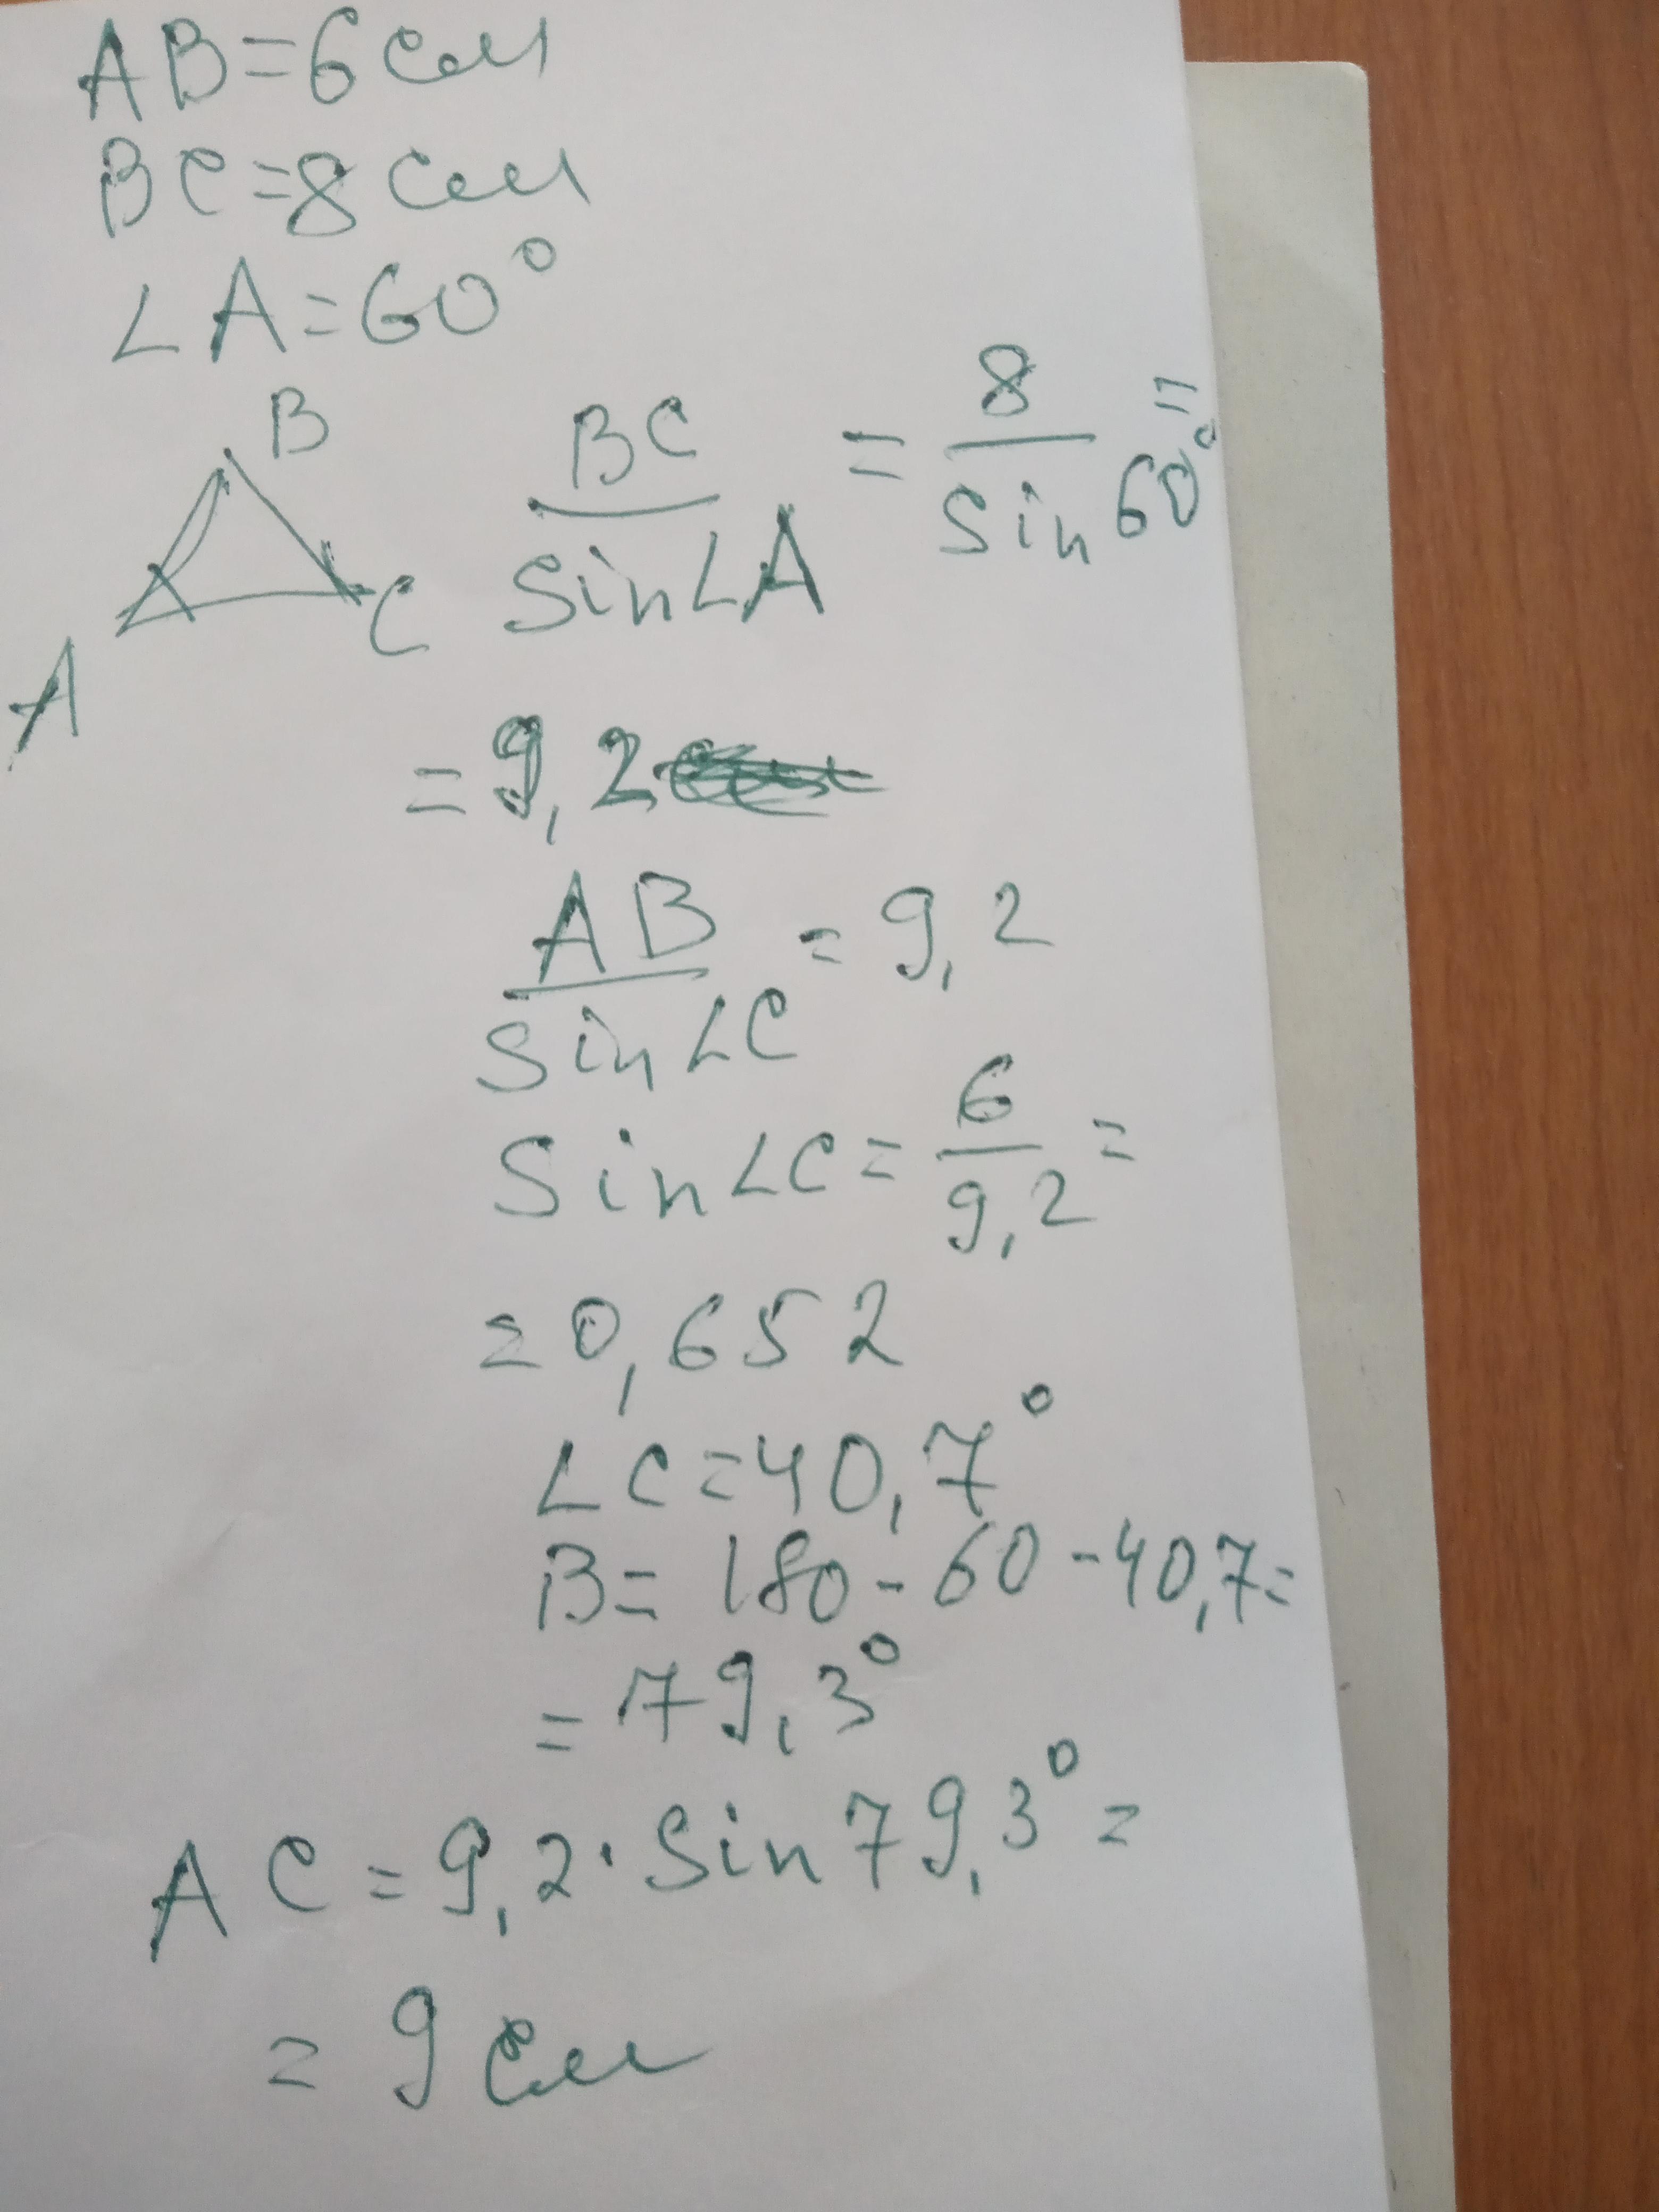 AB=6 см
BC=8 см
∠A=60°
B
A
C
BC/sin∠A = 8/sin60° =
=9,2
AB/sin∠C = 9,2
sin∠C = 6/9,2 =
=0,652
∠C=40,7°
B= 180-60-40,7=
=79,3°
AC=9,2·sin79,3°=
=9 см